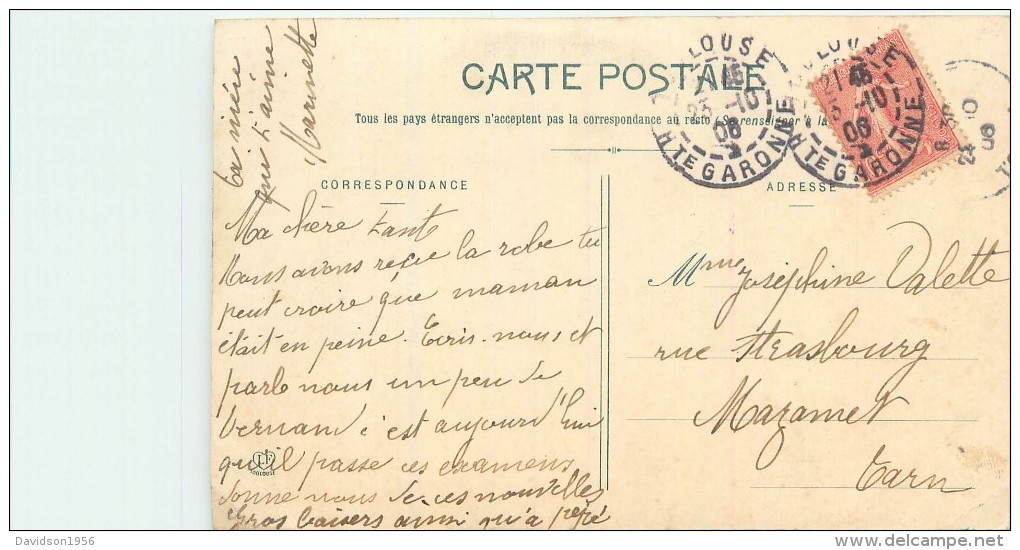 CARTE POSTALE
Tous les pays étrangers n'acceptent pas la correspondance au recto (Se renseigner à la
CORRESPONDANCE
Ma chère tante
Nous avons reçue la robe tu
peut croire que maman
était en peine. Ecris-nous et
parle nous un peu de
Vernand c'est aujourd'hui
qu'il passe ces examens
donne nous de ces nouvelles
Gros baisers ainsi qu'a pépé
ta nièce
qui t'aime
Marinette
ADRESSE
Mme Joséphine Valette
rue Strasbourg
Mazamet
Tarn
TOULOUSE
16
23 -10
06
HTE GARONNE
TOULOUSE
16
23 -10
06
HTE GARONNE
LF
TOULOUSE
Davidson1956
delcampe.net